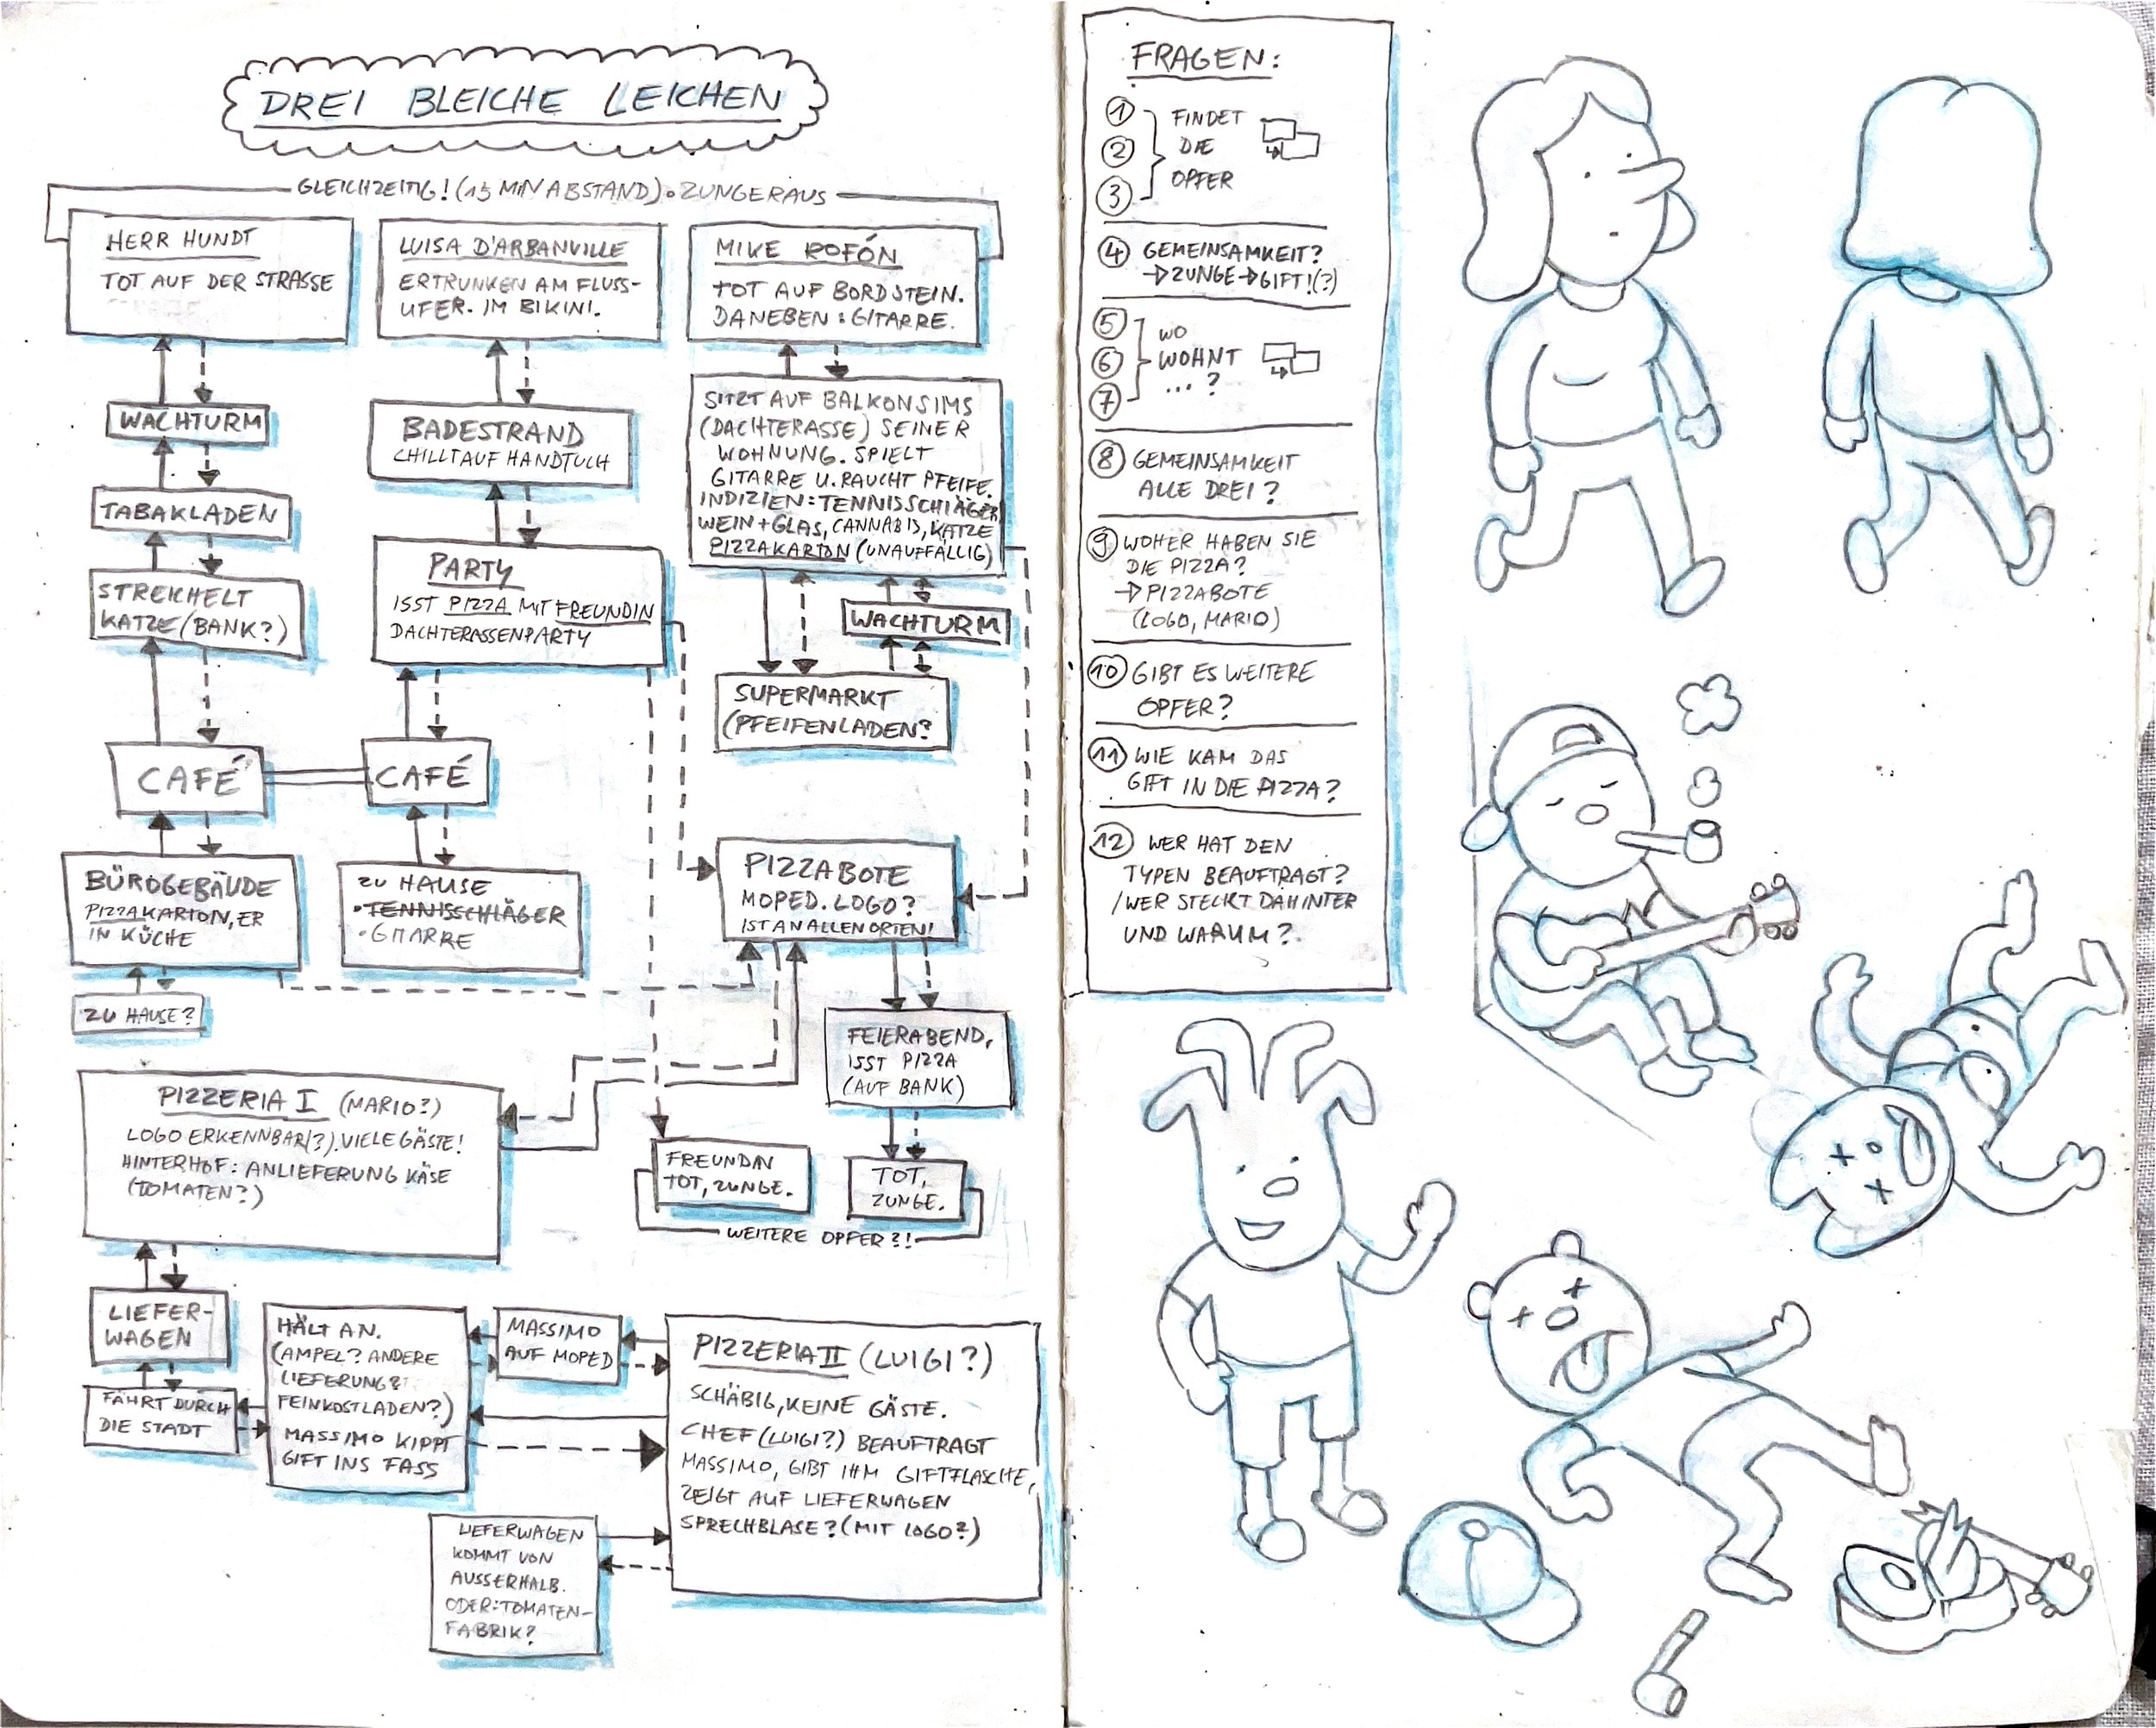 DREI BLEICHE LEICHEN
GLEICHZEITIG! (15 MIN ABSTAND) • ZUNGE RAUS
HERR HUNDT
TOT AUF DER STRASSE
LUISA D'ARBANVILLE
ERTRUNKEN AM FLUSS-
UFER. IM BIKINI.
MIKE ROFÓN
TOT AUF BORDSTEIN.
DANEBEN: GITARRE.
WACHTURM
TABAKLADEN
STREICHELT
KATZE (BANK?)
CAFÉ
BÜROGEBÄUDE
PIZZAKARTON, ER
IN KÜCHE
ZU HAUSE?
BADESTRAND
CHILLT AUF HANDTUCH
PARTY
ISST PIZZA MIT FREUNDIN
DACHTERASSENPARTY
CAFÉ
ZU HAUSE
• TENNISSCHLÄGER
• GITARRE
SITZT AUF BALKONSIMS
(DACHTERASSE) SEINER
WOHNUNG. SPIELT
GITARRE U. RAUCHT PFEIFE.
INDIZIEN: TENNISSCHLÄGER
WEIN + GLAS, CANNABIS, KATZE
PIZZAKARTON (UNAUFFÄLLIG)
WACHTURM
SUPERMARKT
(PFEIFENLADEN?
PIZZABOTE
MOPED. LOGO?
IST AN ALLEN ORTEN!
FEIERABEND,
ISST PIZZA
(AUF BANK)
FREUNDIN
TOT, ZUNGE.
TOT,
ZUNGE.
WEITERE OPFER?!
PIZZERIA I (MARIO?)
LOGO ERKENNBAR(?). VIELE GÄSTE!
HINTERHOF: ANLIEFERUNG KÄSE
(TOMATEN?)
LIEFER-
WAGEN
FÄHRT DURCH
DIE STADT
HÄLT AN.
(AMPEL? ANDERE
LIEFERUNG?
FEINKOSTLADEN?)
MASSIMO KIPPT
GIFT INS FASS
MASSIMO
AUF MOPED
PIZZERIA II (LUIGI?)
SCHÄBIG, KEINE GÄSTE.
CHEF (LUIGI?) BEAUFTRAGT
MASSIMO, GIBT IHM GIFTFLASCHE,
ZEIGT AUF LIEFERWAGEN
SPRECHBLASE? (MIT LOGO?)
LIEFERWAGEN
KOMMT VON
AUSSERHALB.
ODER: TOMATEN-
FABRIK?
FRAGEN:
1
2
3
FINDET
DIE
OPFER
4 GEMEINSAMKEIT?
→ ZUNGE → GIFT! (?)
5
6
7
WO
WOHNT
... ?
8 GEMEINSAMKEIT
ALLE DREI?
9 WOHER HABEN SIE
DIE PIZZA?
→ PIZZABOTE
(LOGO, MARIO)
10 GIBT ES WEITERE
OPFER?
11 WIE KAM DAS
GIFT IN DIE PIZZA?
12 WER HAT DEN
TYPEN BEAUFTRAGT?
/WER STECKT DAHINTER
UND WARUM?